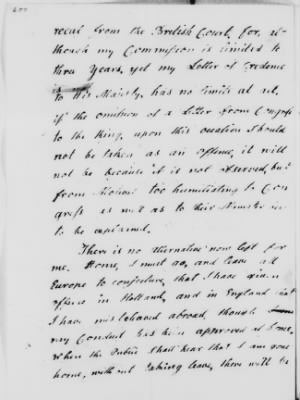 recal from the British Court, for, al-
though my Commission is limited to
three Years, yet my Letter of Credence
to his Majesty, has no limits at all.
if the omission of a Letter from Congress
to the King, upon this occasion should
not be taken as an offence, it will
not be because it is not observed, but
from Motives too humiliating to Con-
gress as well as to their Minister here
to be explained.
There is no alternative now left for
me. Home, I must go, and leave all
Europe to conjecture, that I have given
offence in Holland, and in England that
I have misbehaved abroad, though
my Conduct has been approved at home.
When the Public shall hear that I am gone
home, without taking leave, there will be